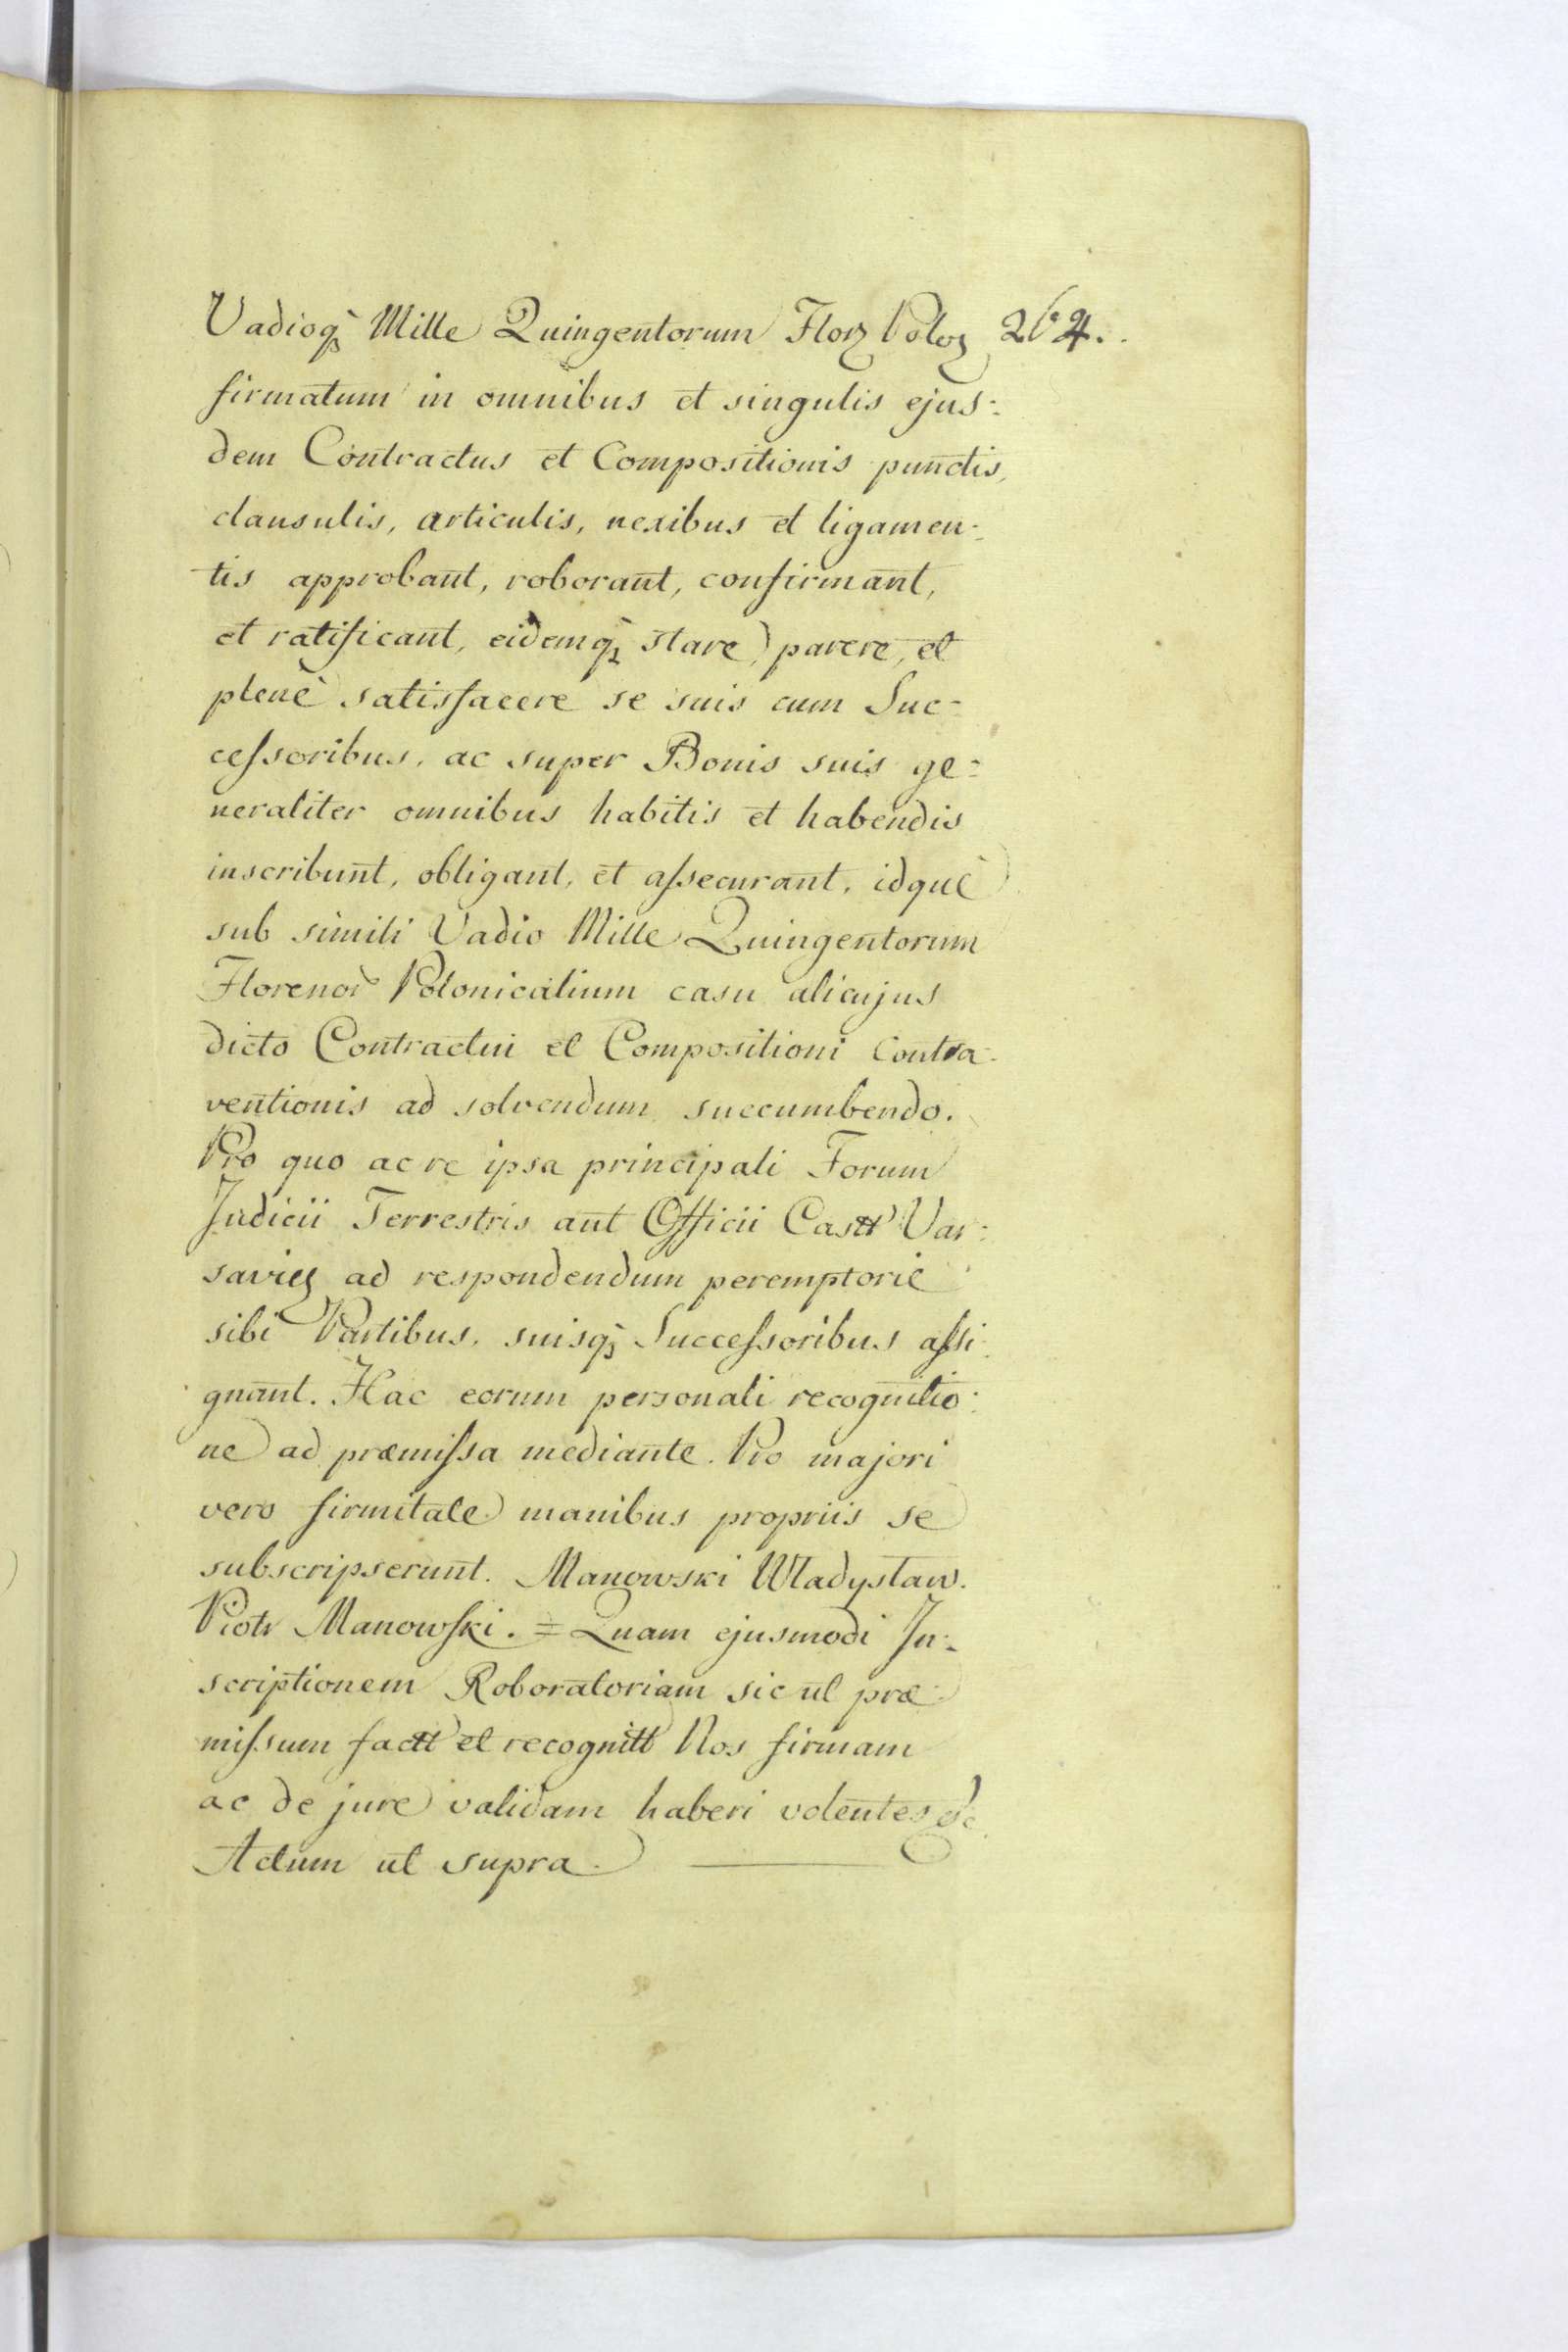 Vadioq3 Mille Quingentorum Flor Polo 264.
firmatum in omnibus et singulis ejus-
dem Contractus et Compositionis punctis,
clausulis, articulis, nexibus et ligamen-
tis approbant, roborant, confirmant,
et ratificant, eidemq3 stare, parere, et
plenè satisfacere se suis cum Suc-
cessoribus, ac super Bonis suis ge-
neraliter omnibus habitis et habendis
inscribunt, obligant, et assecurant, idquè
sub simili Vadio Mille Quingentorum
Florenor Polonicalium casu alicujus
dicto Contractui et Compositioni Contra-
ventionis ad solvendum succumbendo.
Pro quo ac re ipsa principali Forum
Judicii Terrestris aut Officii Castr Var-
savien ad respondendum peremptorie
sibi Partibus, suisq3 Successoribus assi-
gnant. Hac eorum personali recognitio-
ne ad præmissa mediante. Pro majori
vero firmitate manibus propriis se
subscripserunt. Manowski Władysław.
Piotr Manowski. = Quam ejusmodi In-
scriptionem Roboratoriam sic ut præ-
missum factt et recognitt Nos firmam
ac de jure validam haberi volentes &c.
Actum ut supra.